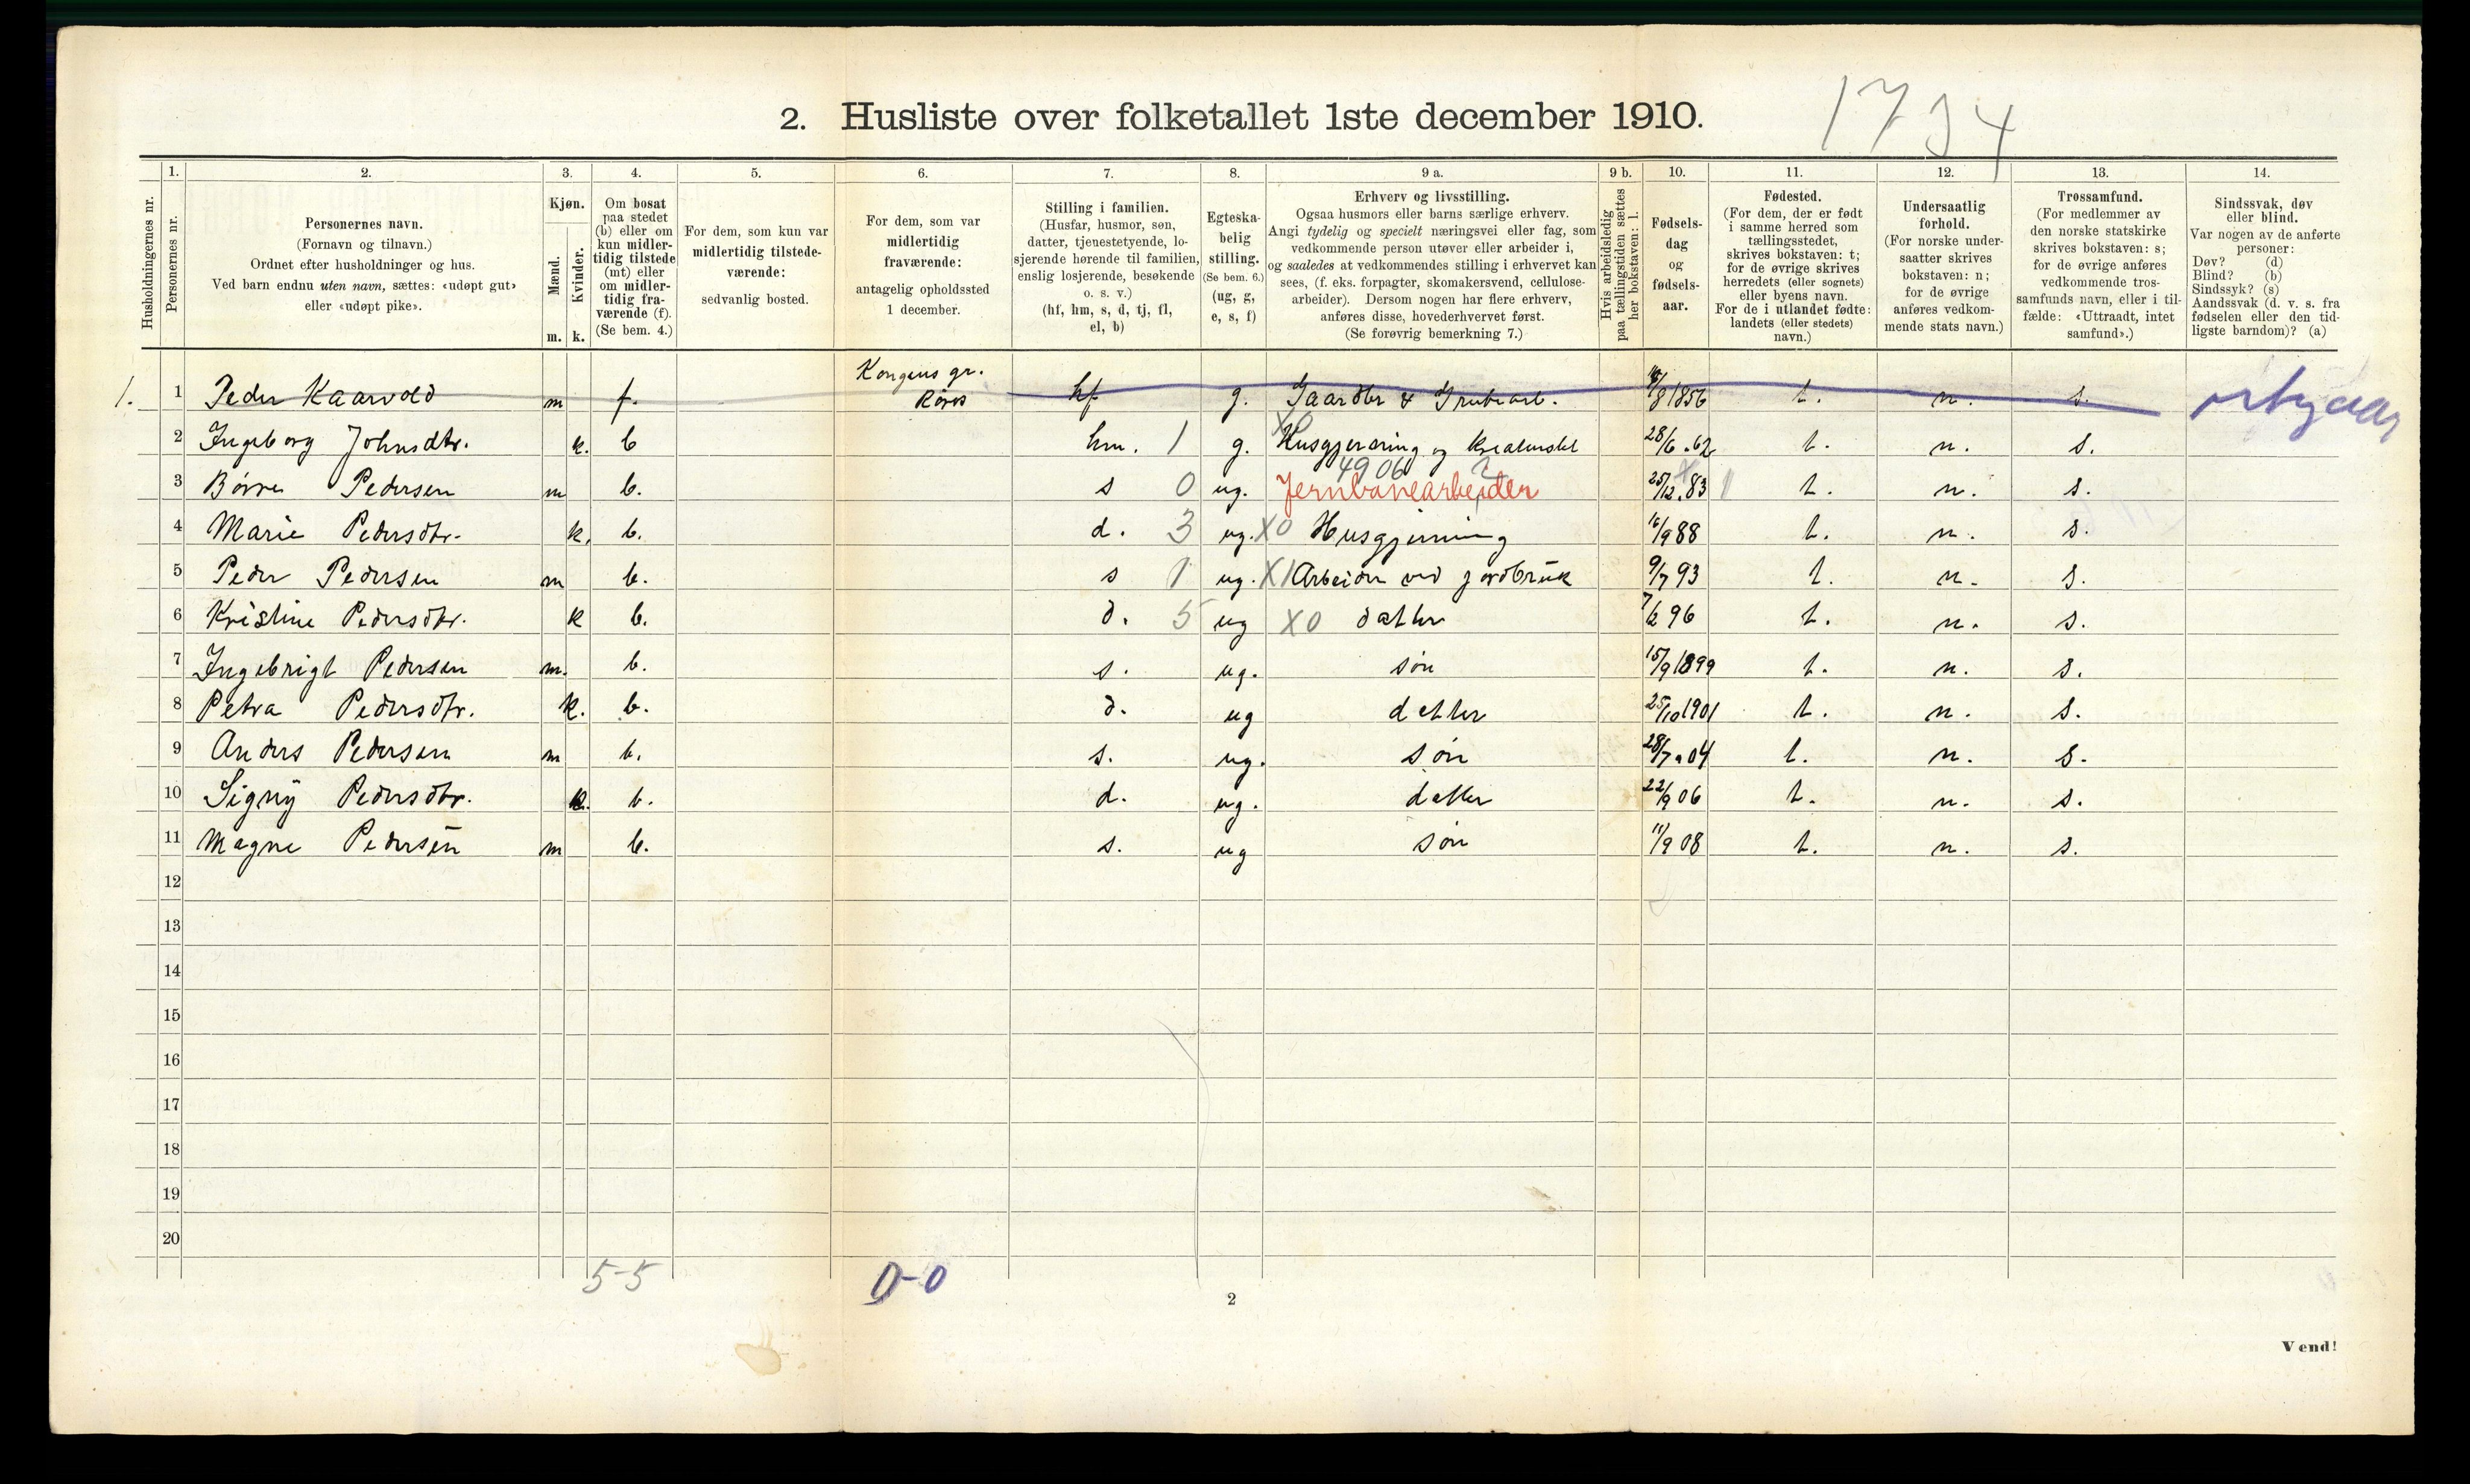 2. Husliste over folketallet 1ste december 1910.
1734
Husholdningernes nr.
1. Personernes nr.
2. Personernes navn. (Fornavn og tilnavn.) Ordnet efter husholdninger og hus. Ved barn endnu uten navn, sættes: «udøpt gut» eller «udøpt pike».
3. Kjøn. Mænd. m. Kvinder. k.
4. Om bosat paa stedet (b) eller om kun midlertidig tilstede (mt) eller om midlertidig fraværende (f). (Se bem. 4.)
5. For dem, som kun var midlertidig tilstedeværende: sedvanlig bosted.
6. For dem, som var midlertidig fraværende: antagelig opholdssted 1 december.
7. Stilling i familien. (Husfar, husmor, søn, datter, tjenestetyende, losjerende hørende til familien, enslig losjerende, besøkende o. s. v.) (hf, hm, s, d, tj, fl, el, b)
8. Egteskabelig stilling. (Se bem. 6.) (ug, g, e, s, f)
9 a. Erhverv og livsstilling. Ogsaa husmors eller barns særlige erhverv. Angi tydelig og specielt næringsvei eller fag, som vedkommende person utøver eller arbeider i, og saaledes at vedkommendes stilling i erhvervet kan sees, (f. eks. forpagter, skomakersvend, cellulosearbeider). Dersom nogen har flere erhverv, anføres disse, hovederhvervet først. (Se forøvrig bemerkning 7.)
9 b. Hvis arbeidsledig paa tællingstiden sættes her bokstaven: l.
10. Fødselsdag og fødselsaar.
11. Fødested. (For dem, der er født i samme herred som tællingsstedet, skrives bokstaven: t; for de øvrige skrives herredets (eller sognets) eller byens navn. For de i utlandet fødte: landets (eller stedets) navn.)
12. Undersaatlig forhold. (For norske undersaatter skrives bokstaven: n; for de øvrige anføres vedkommende stats navn.)
13. Trossamfund. (For medlemmer av den norske statskirke skrives bokstaven: s; for de øvrige anføres vedkommende trossamfunds navn, eller i tilfælde: «Uttraadt, intet samfund».)
14. Sindssvak, døv eller blind. Var nogen av de anførte personer: Døv? (d) Blind? (b) Sindssyk? (s) Aandssvak (d. v. s. fra fødselen eller den tidligste barndom)? (a)
1. 1 Peder Kaarvold m f. Kongens gr. Røros hf g. Gaardbr & Grubearb. /8 1856 t. n. s.
2 Ingeborg Johnsdtr. k. b hm. 1 g. X0 Husgjerning og Kreaturstel 28/6.62 t. n. s.
3 Børre Pedersen m b. s 0 ug. 4906 Jernbanearbeider 25/12.83 t. n. s.
4 Marie Pedersdtr. k. b. d. 3 ug. X0 Husgjerning 16/9 88 t. n. s.
5 Peder Pedersen m b. s 1 ug. X1 Arbeider ved jordbruk 9/7 93 t. n. s.
6 Kristine Pedersdtr. k b. d. 5 ug X0 datter 7/2 96 t. n. s.
7 Ingebrigt Pedersen m. b. s. ug. søn 15/9 1899 t. n. s.
8 Petra Pedersdtr. k. b. d. ug datter 25/10 1901 t. n. s.
9 Anders Pedersen m b. s. ug. søn 28/7.04 t. n. s.
10 Signy Pedersdtr. k. b. d. ug. datter 22/9 06 t. n. s.
11 Magne Pedersen m b. s. ug søn 11/9 08 t. n. s.
12
13
14
15
16
17
18
19
20
5-5
0-0
2
Vend!